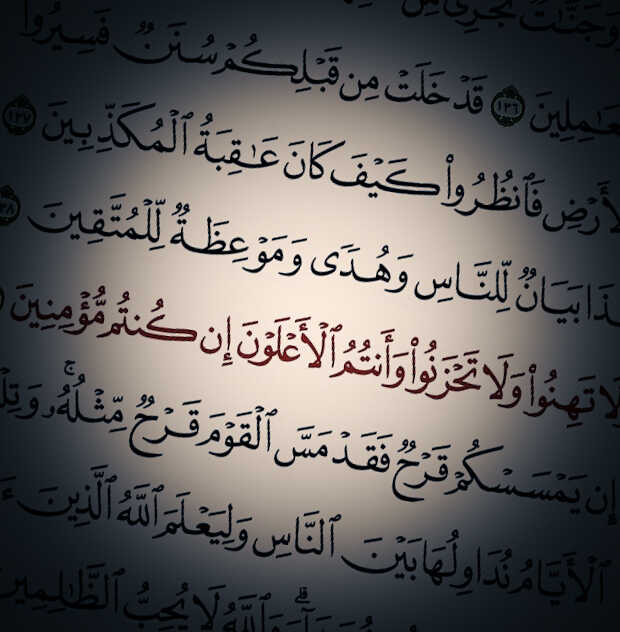 وَجَنَّٰتٌ تَجْرِى مِن
عَٰمِلِينَ ١٣٦ قَدْ خَلَتْ مِن قَبْلِكُمْ سُنَنٌ فَسِيرُوا۟
لْأَرْضِ فَٱنظُرُوا۟ كَيْفَ كَانَ عَٰقِبَةُ ٱلْمُكَذِّبِينَ ١٣٧
ذَا بَيَانٌ لِّلنَّاسِ وَهُدًى وَمَوْعِظَةٌ لِّلْمُتَّقِينَ ١٣٨
لَا تَهِنُوا۟ وَلَا تَحْزَنُوا۟ وَأَنتُمُ ٱلْأَعْلَوْنَ إِن كُنتُم مُّؤْمِنِينَ
إِن يَمْسَسْكُمْ قَرْحٌ فَقَدْ مَسَّ ٱلْقَوْمَ قَرْحٌ مِّثْلُهُۥ ۚ وَتِلْ
ٱلْأَيَّامُ نُدَاوِلُهَا بَيْنَ ٱلنَّاسِ وَلِيَعْلَمَ ٱللَّهُ ٱلَّذِينَ ءَ
وَٱللَّهُ لَا يُحِبُّ ٱلظَّٰلِمِينَ